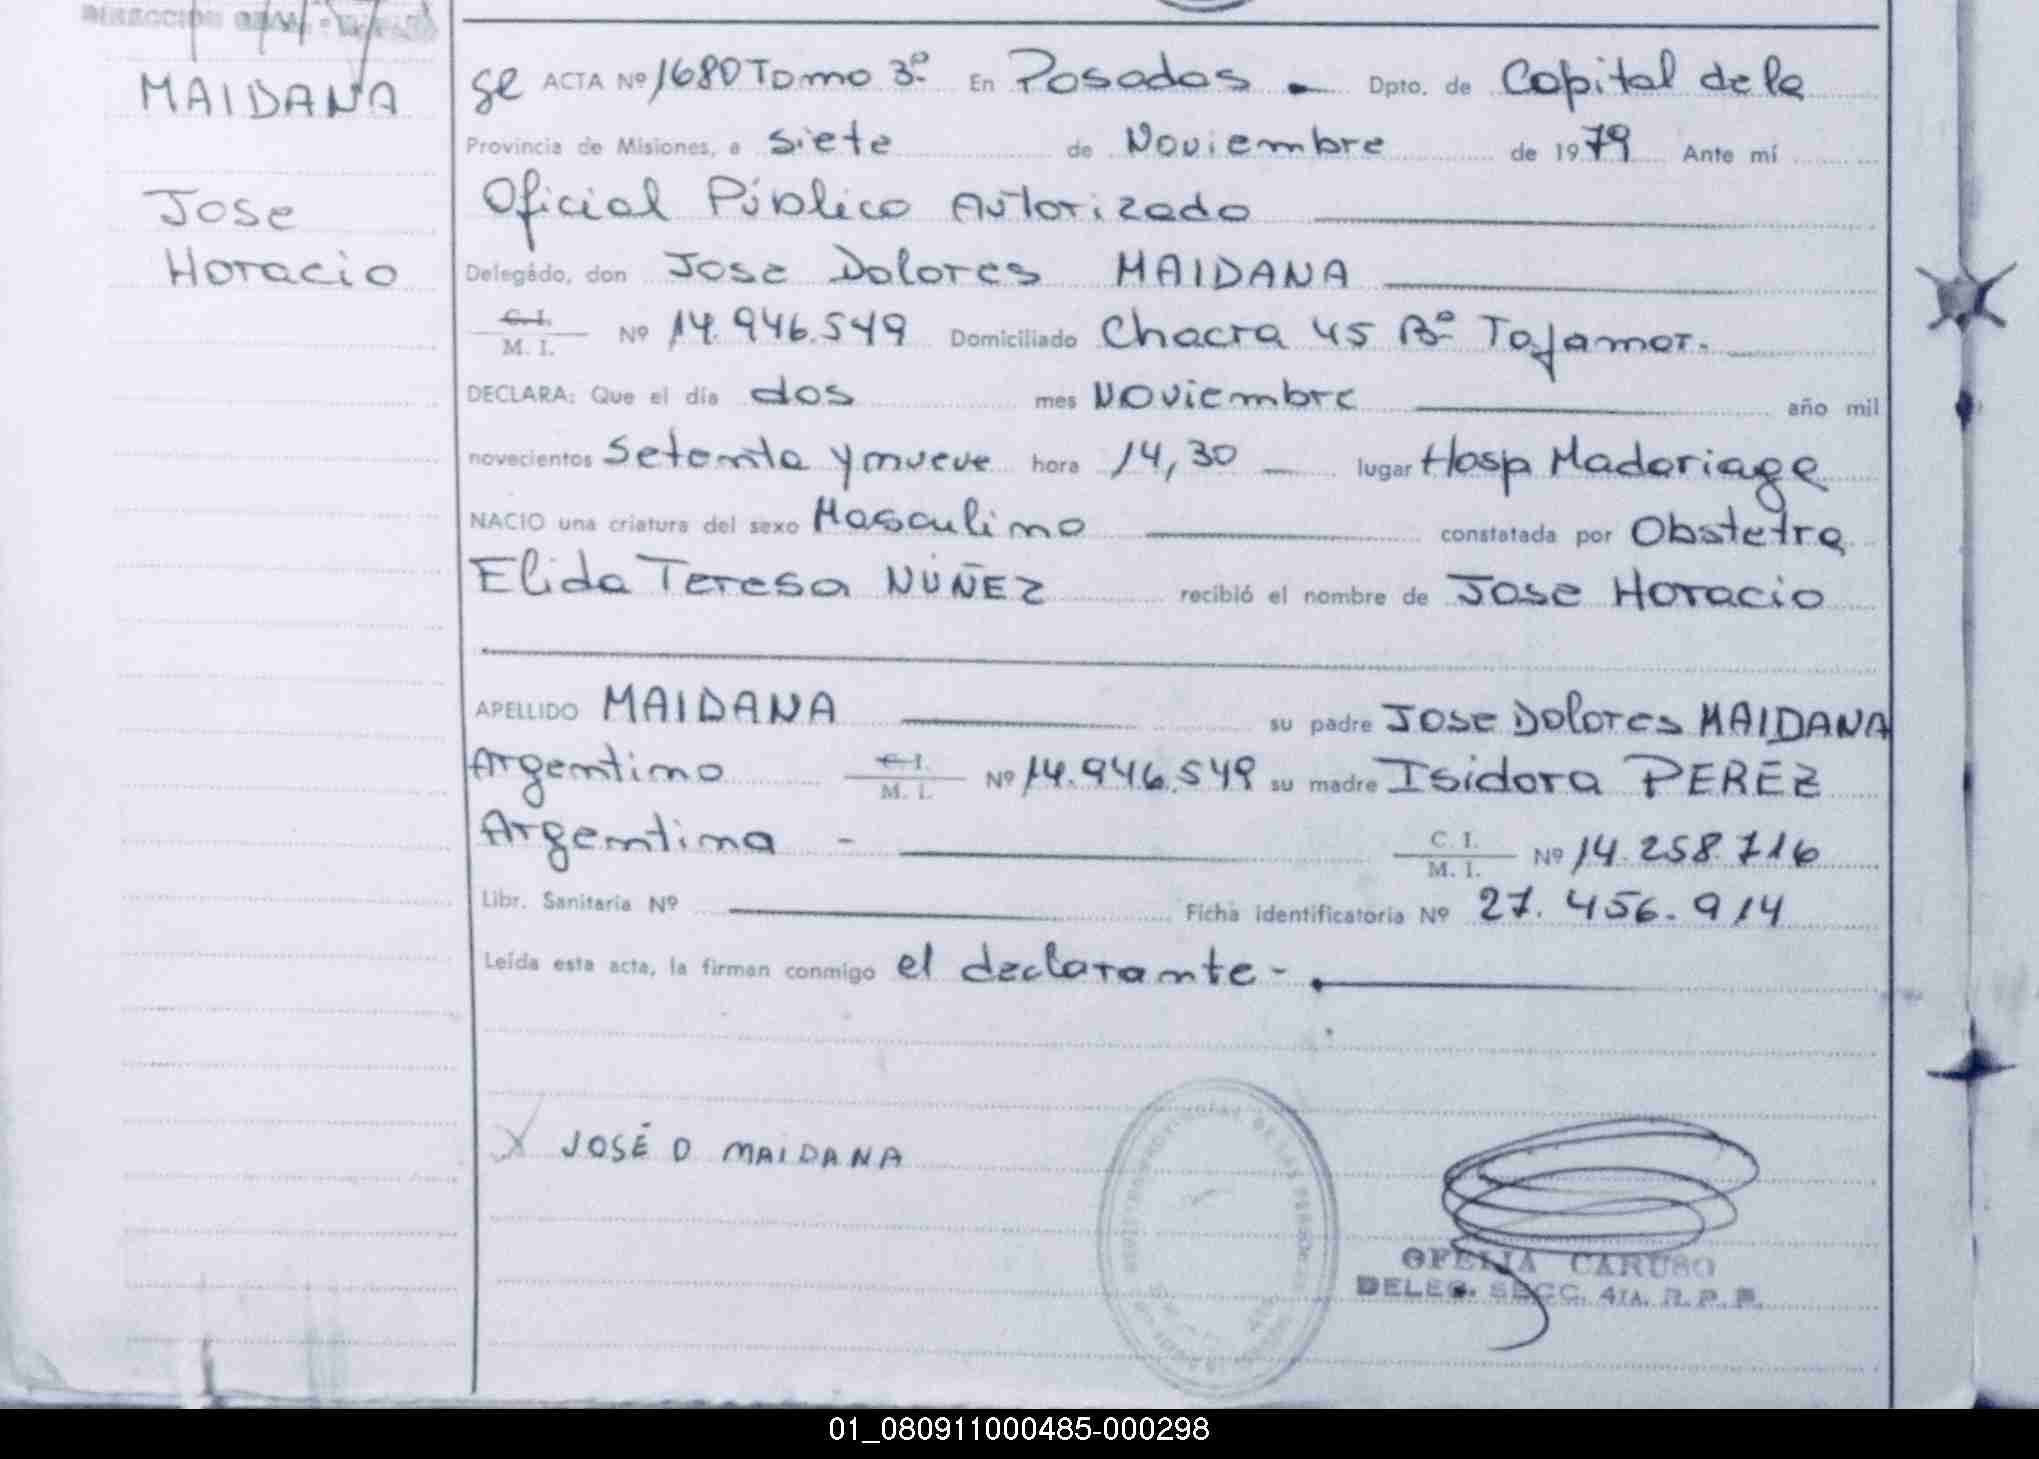 DIRECCION GRAL.
MAIDANA
Jose
Horacio
ACTA Nº 1680 Tomo 3º En Posadas Dpto. de Capital de la
Provincia de Misiones, a siete de Noviembre de 1979 Ante mí
Oficial Público Autorizado
Delegado, don Jose Dolores MAIDANA
C. I.
M. I. Nº 14.946.549 Domiciliado Chacra 45 Bº Tajamar.
DECLARA: Que el día dos mes Noviembre año mil
novecientos Setenta y nueve hora 14,30 lugar Hosp Madariaga
NACIO una criatura del sexo Masculino constatada por Obstetra
Elida Teresa NUÑEZ recibió el nombre de Jose Horacio
APELLIDO MAIDANA su padre Jose Dolores MAIDANA
Argentino C. I.
M. I. Nº 14.946.549 su madre Isidora PEREZ
Argentina - C. I.
M. I. Nº 14.258.716
Libr. Sanitaria Nº Ficha identificatoria Nº 27.456.914
Leída esta acta, la firman conmigo el declarante -
X JOSÉ D MAIDANA
OFELIA CARUSO
DELEG. SECC. 4TA. R. P. P.
01_080911000485-000298